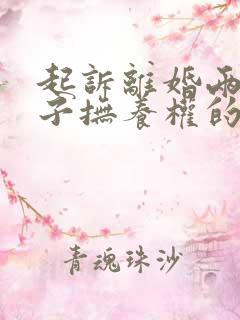 起訴離婚兩
子撫養權的
青魂珠沙